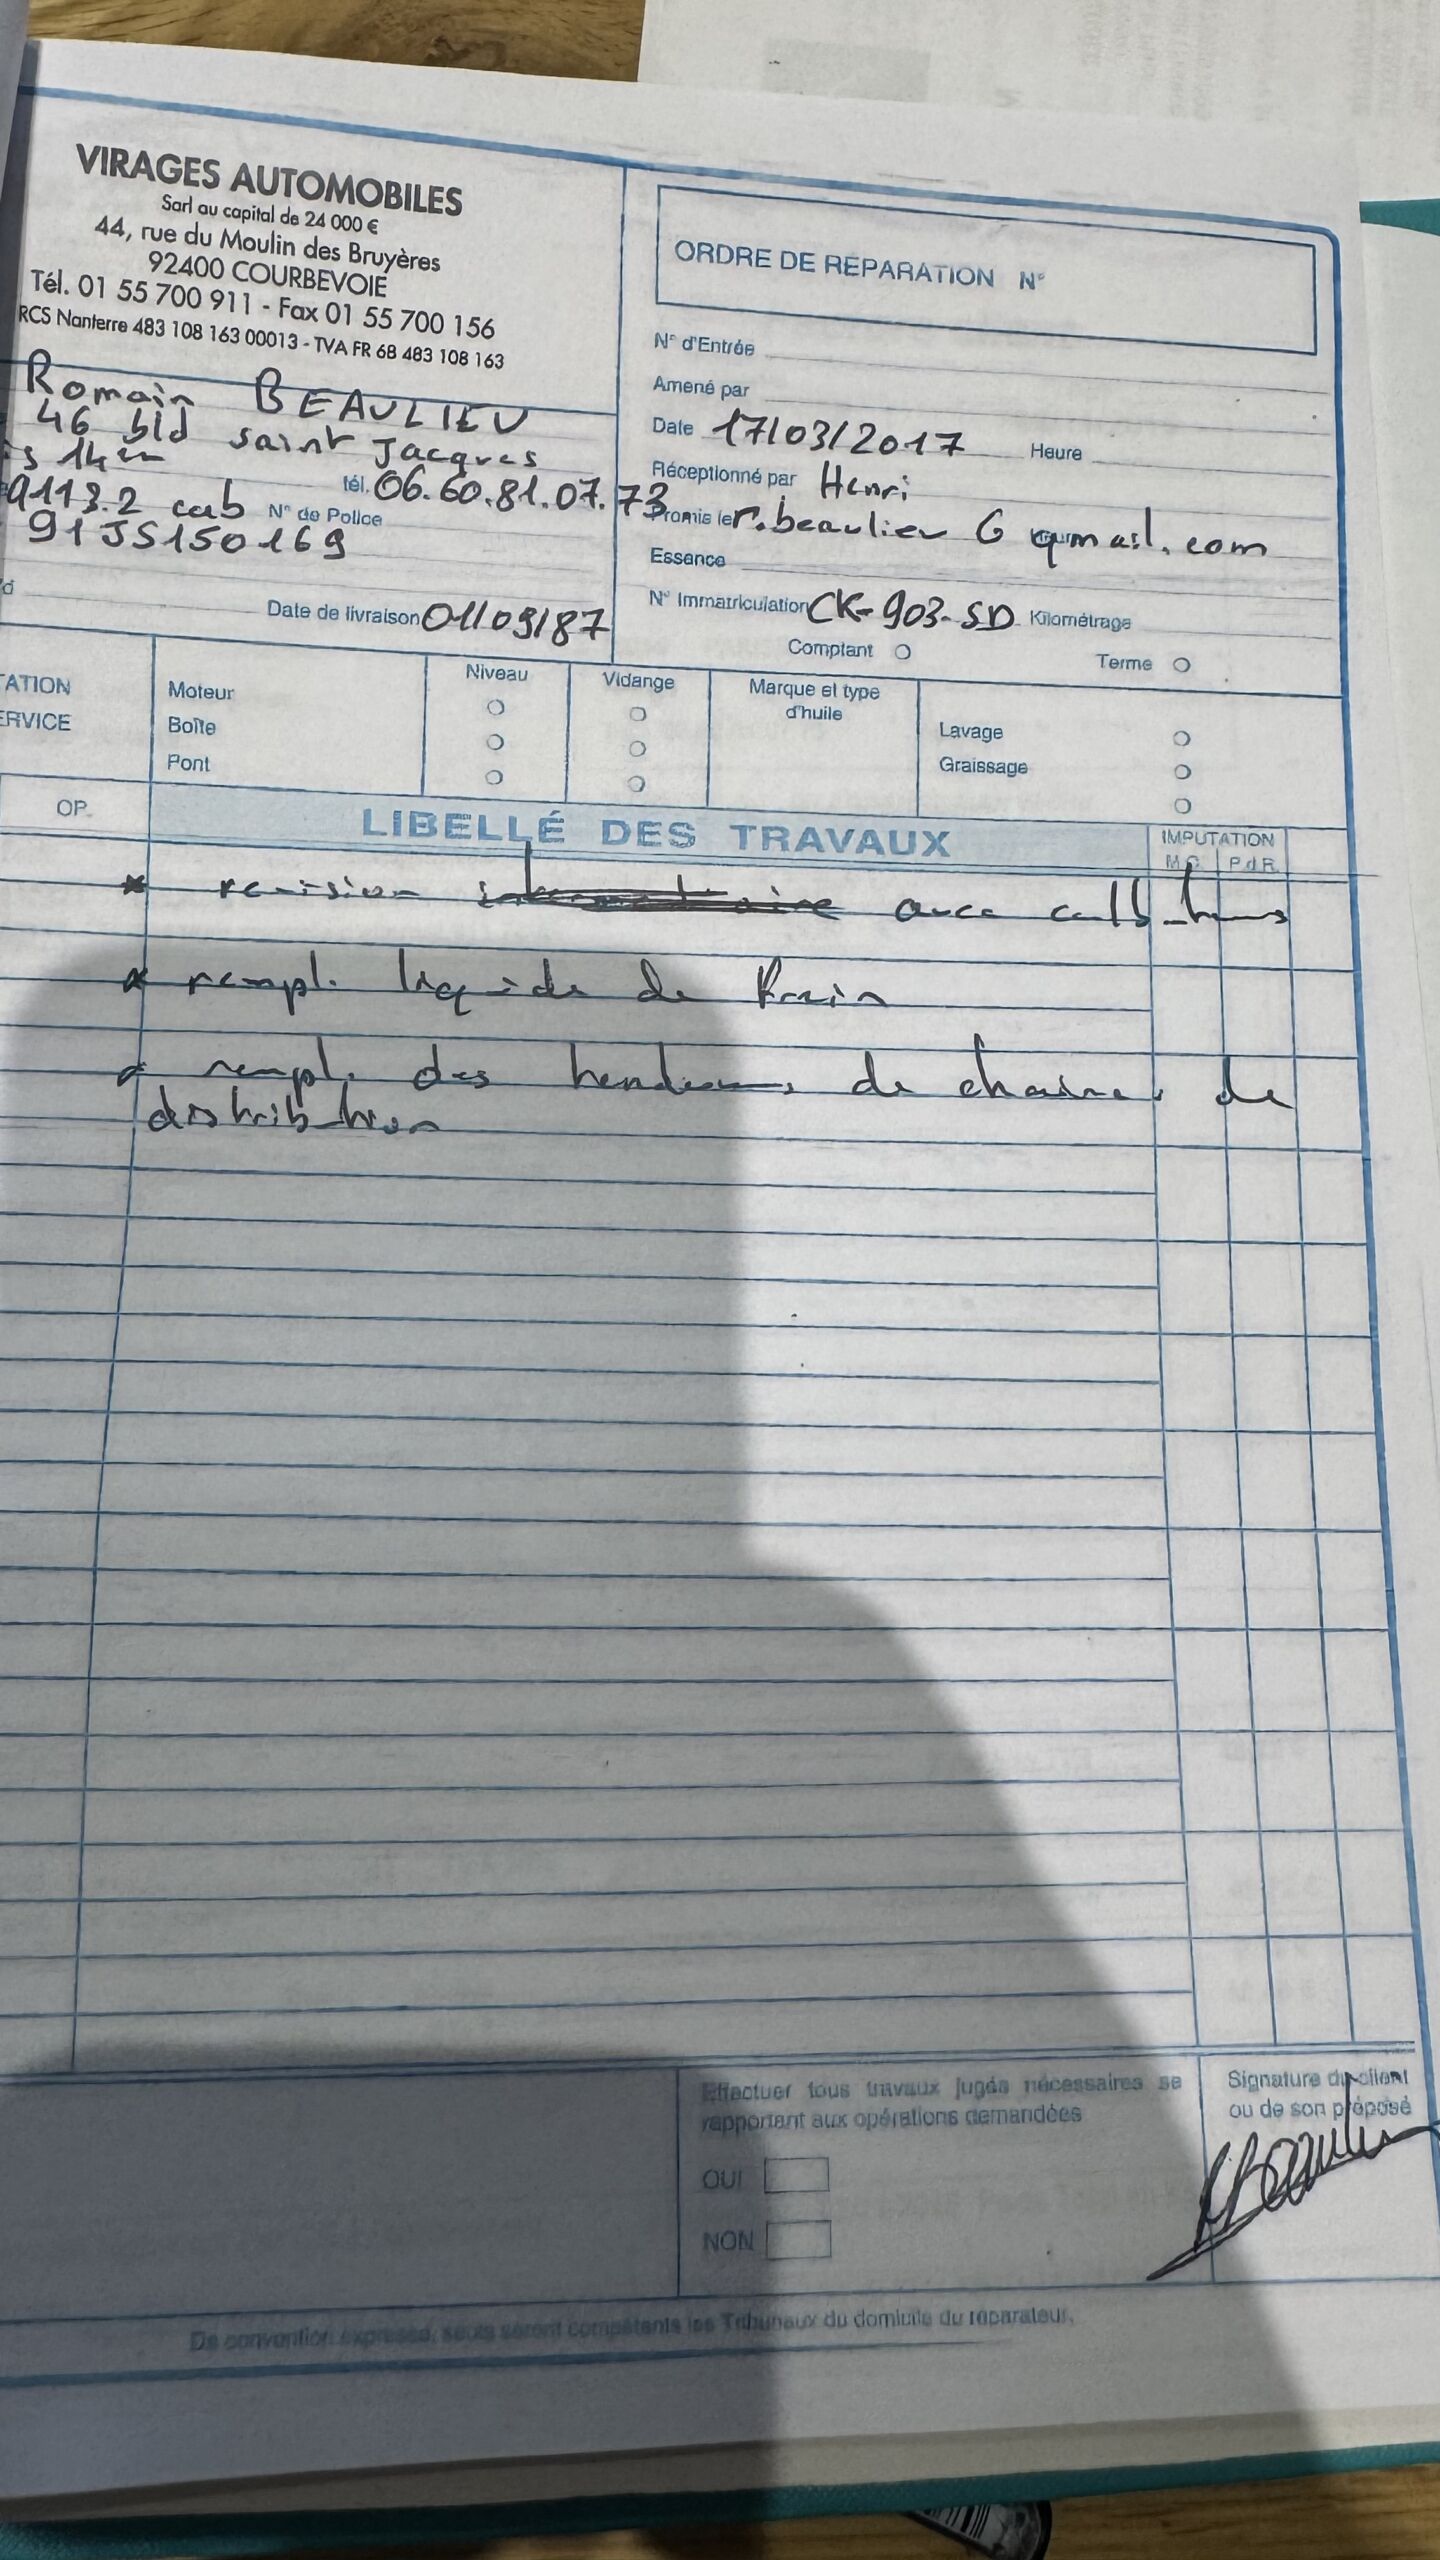 VIRAGES AUTOMOBILES
Sarl au capital de 24 000 €
44, rue du Moulin des Bruyères
92400 COURBEVOIE
Tél. 01 55 700 911 - Fax 01 55 700 156
RCS Nanterre 483 108 163 00013 - TVA FR 68 483 108 163
ORDRE DE REPARATION N°
Romain BEAULIEU
46 bld saint Jacques
is 14em
tél. 06.60.81.07.73
9113.2 cab N° de Police
91JS150169
Date de livraison 01/09/87
N° d'Entrée
Amené par
Date 17/03/2017 Heure
Réceptionné par Henri
Promis le r.beaulieu @ gmail.com
Essence
N° Immatriculation CK-903-SD Kilométrage
Comptant Terme
TATION
ERVICE
Moteur
Boîte
Pont
Niveau
Vidange
Marque et type
d'huile
Lavage
Graissage
OP.
LIBELLÉ DES TRAVAUX
IMPUTATION
M.O. P.d.R.
* revision avec culbuteurs
* rempl. liquide de frein
* rempl. des tendeurs de chaines de
distribution
Effectuer tous travaux jugés nécessaires se
rapportant aux opérations demandées
OUI
NON
Signature du client
ou de son préposé
De convention expresse, seuls seront compétents les Tribunaux du domicile du réparateur.